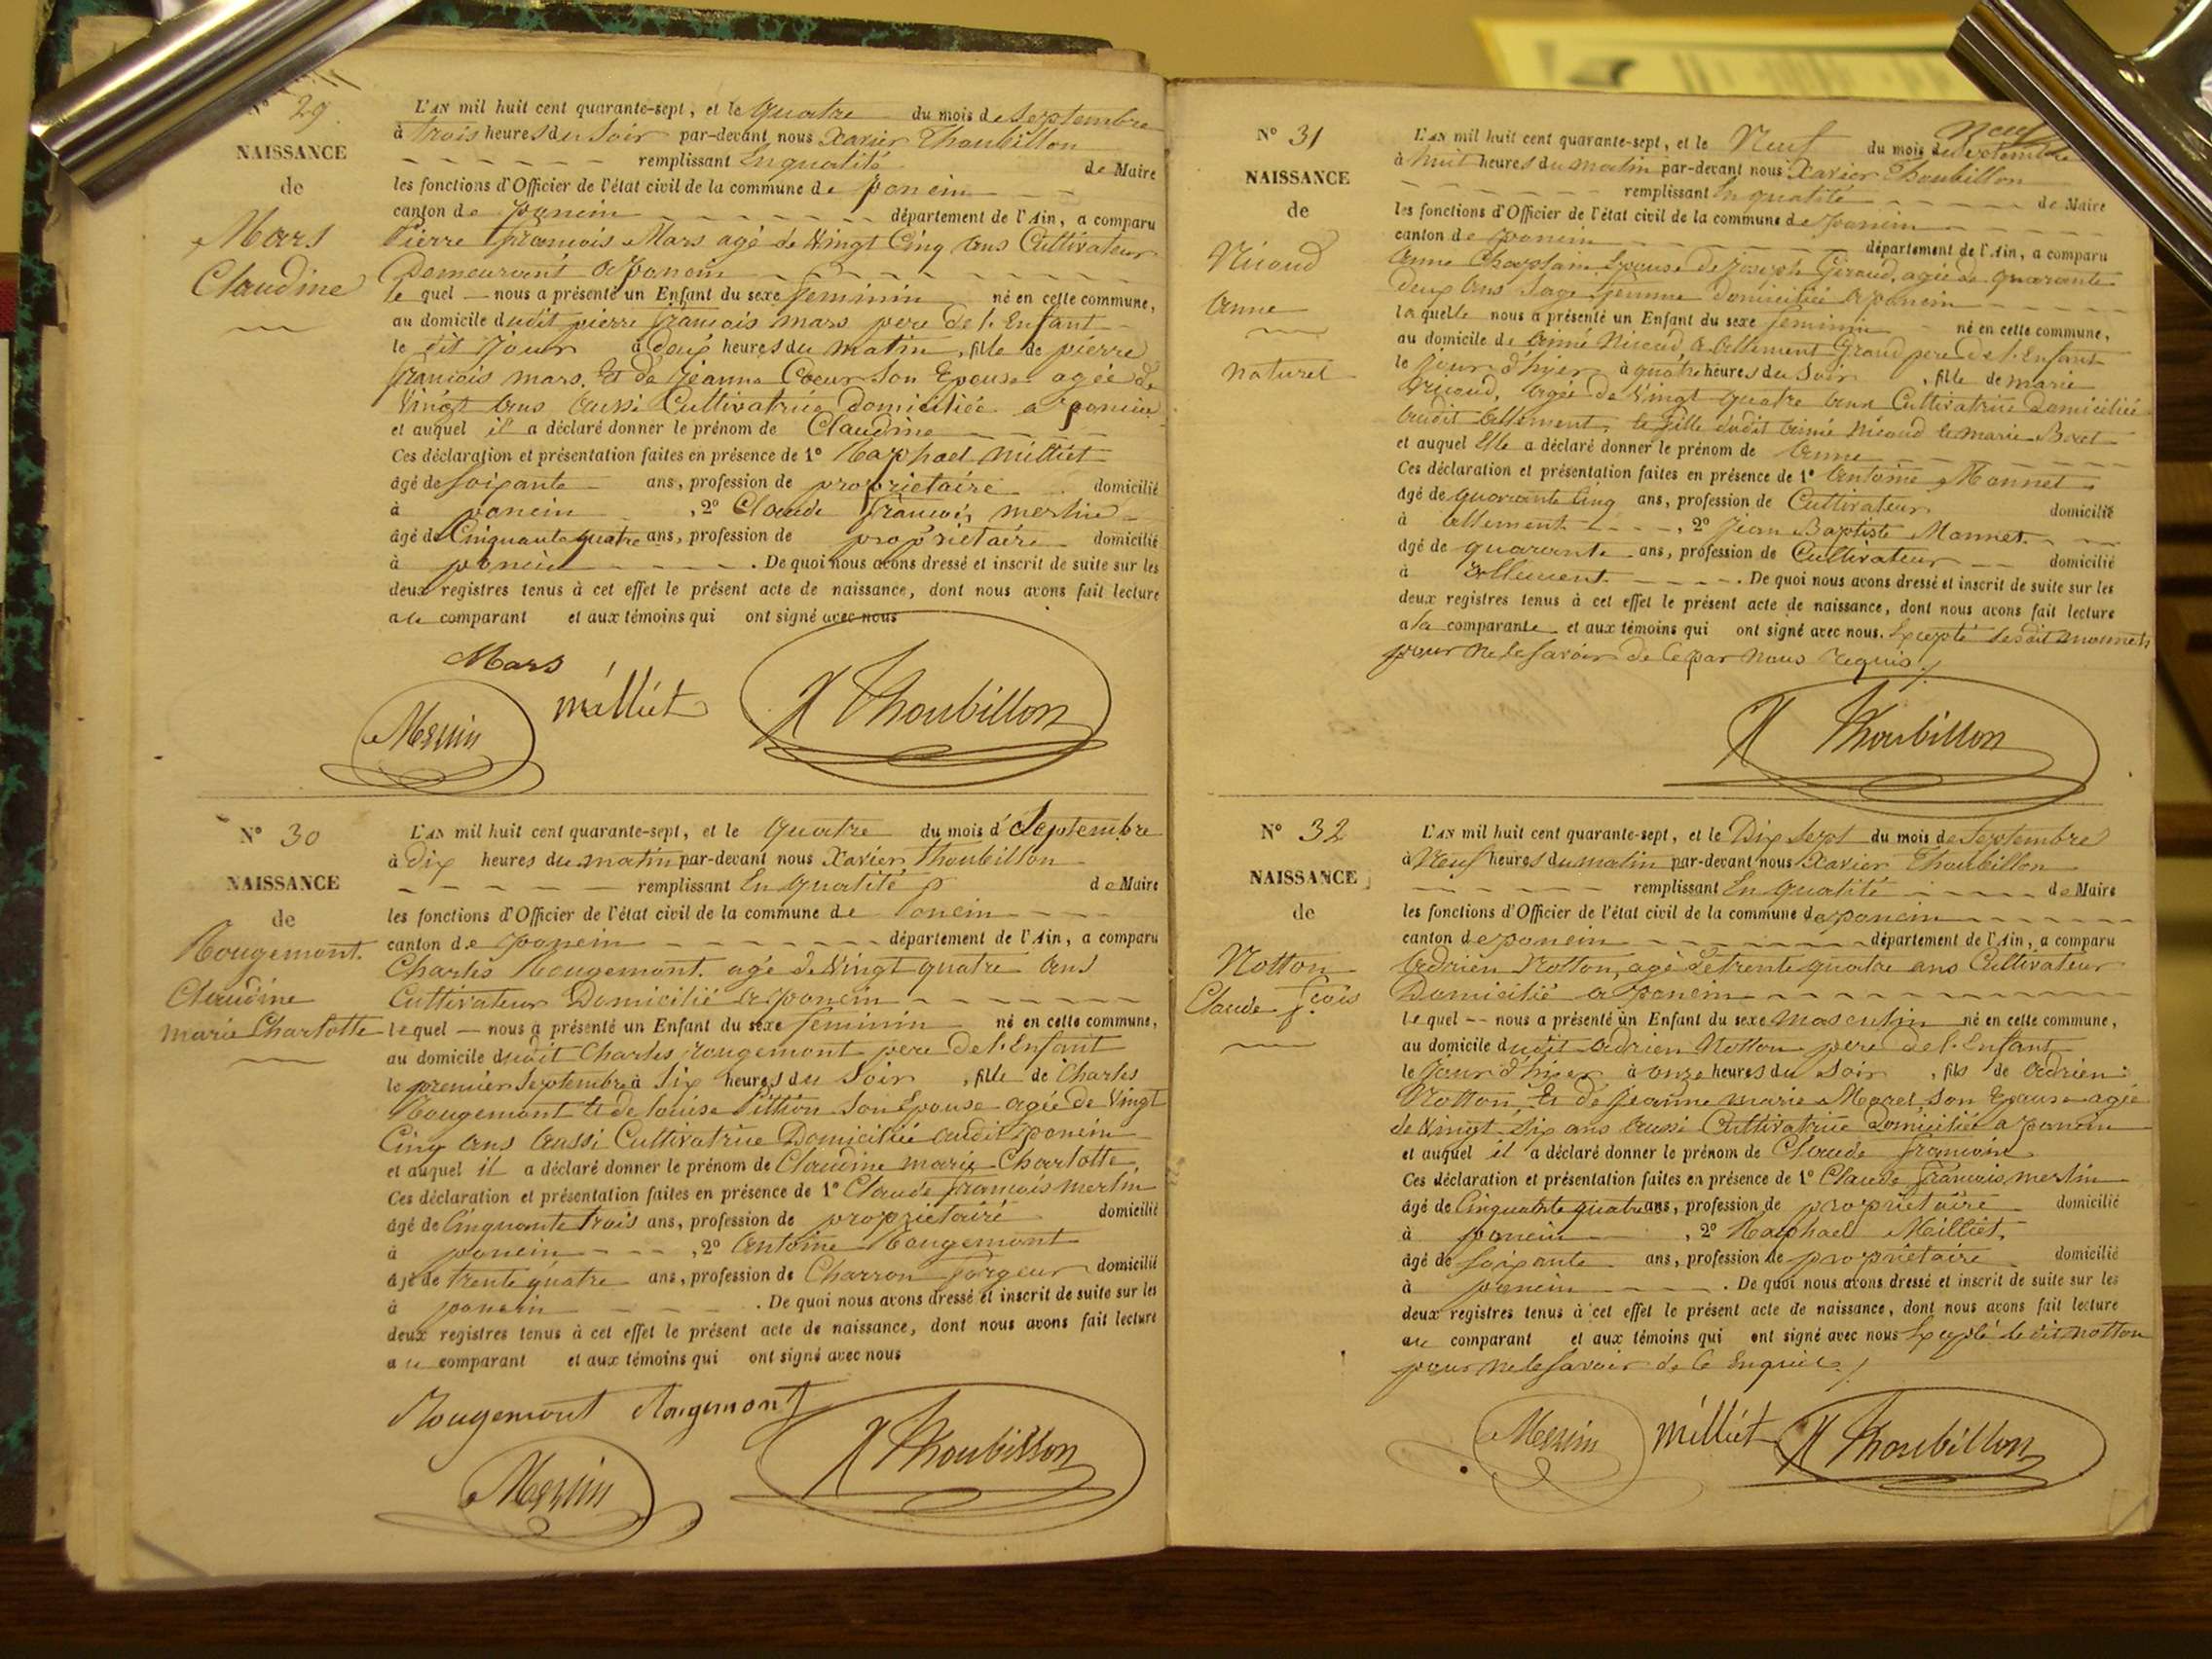 N° 29
NAISSANCE
de
Mars
Claudine
L'AN mil huit cent quarante-sept, et le quatre du mois de Septembre
à trois heures du Soir par-devant nous Xavier Thoubillon
remplissant En qualité de Maire
les fonctions d'Officier de l'état civil de la commune de poncin
canton de poncin département de l'Ain, a comparu
Pierre françois Mars agé de Vingt Cinq ans Cultivateur
Demeurant a poncin
le quel nous a présenté un Enfant du sexe feminin né en cette commune,
au domicile dudit pierre françois mars pere de l'Enfant
le dit Jour à deux heures du matin, fille de pierre
françois mars. Et de Jeanne Coeur Son Epouse agée de
Vingt ans aussi Cultivatrice Domiciliée a poncin
et auquel il a déclaré donner le prénom de Claudine
Ces déclaration et présentation faites en présence de 1° Raphael Milliet
âgé de Soixante ans, profession de proprietaire domicilié
à poncin, 2° Claude françois merlin
âgé de Cinquante quatre ans, profession de proprietaire domicilié
à poncin. De quoi nous avons dressé et inscrit de suite sur les
deux registres tenus à cet effet le présent acte de naissance, dont nous avons fait lecture
au comparant et aux témoins qui ont signé avec nous
Mars
Merlin milliet X Thoubillon
N° 30
NAISSANCE
de
Rougemont.
Claudine
marie Charlotte
L'AN mil huit cent quarante-sept, et le quatre du mois d Septembre
à dix heures du matin par-devant nous Xavier Thoubillon
remplissant En qualité de Maire
les fonctions d'Officier de l'état civil de la commune de Poncin
canton de poncin département de l'Ain, a comparu
Charles Rougemont. agé de Vingt quatre ans
Cultivateur Domicilié a poncin
lequel nous a présenté un Enfant du sexe feminin né en cette commune,
au domicile dudit Charles rougemont pere de l'Enfant
le premier Septembre à Six heures du Soir, fille de Charles
Rougemont Et de louise Pittion Son Epouse agée de Vingt
Cinq ans aussi Cultivatrice Domiciliée audit poncin
et auquel il a déclaré donner le prénom de Claudine marie Charlotte
Ces déclaration et présentation faites en présence de 1° Claude françois merlin
âgé de Cinquante trois ans, profession de proprietaire domicilié
à poncin, 2° Antoine Rougemont
âgé de trente quatre ans, profession de Charron forgeur domicilié
à poncin. De quoi nous avons dressé et inscrit de suite sur les
deux registres tenus à cet effet le présent acte de naissance, dont nous avons fait lecture
au comparant et aux témoins qui ont signé avec nous
Rougemont Rougemont
Merlin X Thoubillon
N° 31
NAISSANCE
de
Nicoud
Anne
naturel
Neuf
L'AN mil huit cent quarante-sept, et le Neuf du mois de Septembre
à huit heures du matin par-devant nous Xavier Thoubillon
remplissant En qualité de Maire
les fonctions d'Officier de l'état civil de la commune de poncin
canton de poncin département de l'Ain, a comparu
Anne Chaplain Epouse de Joseph Géraud, agée de quarante
deux ans Sage femme domiciliée a poncin
laquelle nous a présenté un Enfant du sexe feminin né en cette commune,
au domicile de aimé Nicoud a allement Grand pere de l'Enfant
le Jour d'hyer à quatre heures du Soir, fille de marie
Nicoud, agée de Vingt quatre ans Cultivatrice Domiciliée
audit allement, fille dudit aimé Nicoud
et auquel Elle a déclaré donner le prénom de Anne
Ces déclaration et présentation faites en présence de 1° Antoine Monnet
âgé de quarante Cinq ans, profession de Cultivateur domicilié
à allement, 2° Jean Baptiste Monnet
âgé de quarante ans, profession de Cultivateur domicilié
à allement. De quoi nous avons dressé et inscrit de suite sur les
deux registres tenus à cet effet le présent acte de naissance, dont nous avons fait lecture
a la comparante et aux témoins qui ont signé avec nous. Excepté lesdit monnets
pour ne le Savoir de Ce par nous requis
X Thoubillon
N° 32
NAISSANCE
de
Notton
Claude f.cois
L'AN mil huit cent quarante-sept, et le Dix Sept du mois de Septembre
à Neuf heures du matin par-devant nous Xavier Thoubillon
remplissant En qualité de Maire
les fonctions d'Officier de l'état civil de la commune de poncin
canton de poncin département de l'Ain, a comparu
Adrien Notton, agé de trente quatre ans Cultivateur
Domicilié a poncin
lequel nous a présenté un Enfant du sexe masculin né en cette commune,
au domicile dudit adrien Notton pere de l'Enfant
le Jour d'hyer à onze heures du Soir, fils de adrien
Notton Et de Jeanne marie Morel Son Epouse agée
de Vingt Six ans aussi Cultivatrice Domiciliée a poncin
et auquel il a déclaré donner le prénom de Claude françois
Ces déclaration et présentation faites en présence de 1° Claude françois merlin
âgé de Cinquante quatre ans, profession de proprietaire domicilié
à poncin, 2° Raphael Milliet,
âgé de Soixante ans, profession de proprietaire domicilié
à poncin. De quoi nous avons dressé et inscrit de suite sur les
deux registres tenus à cet effet le présent acte de naissance, dont nous avons fait lecture
au comparant et aux témoins qui ont signé avec nous Excepté le dit notton
pour ne le Savoir de Ce Enquis
Merlin milliet X Thoubillon